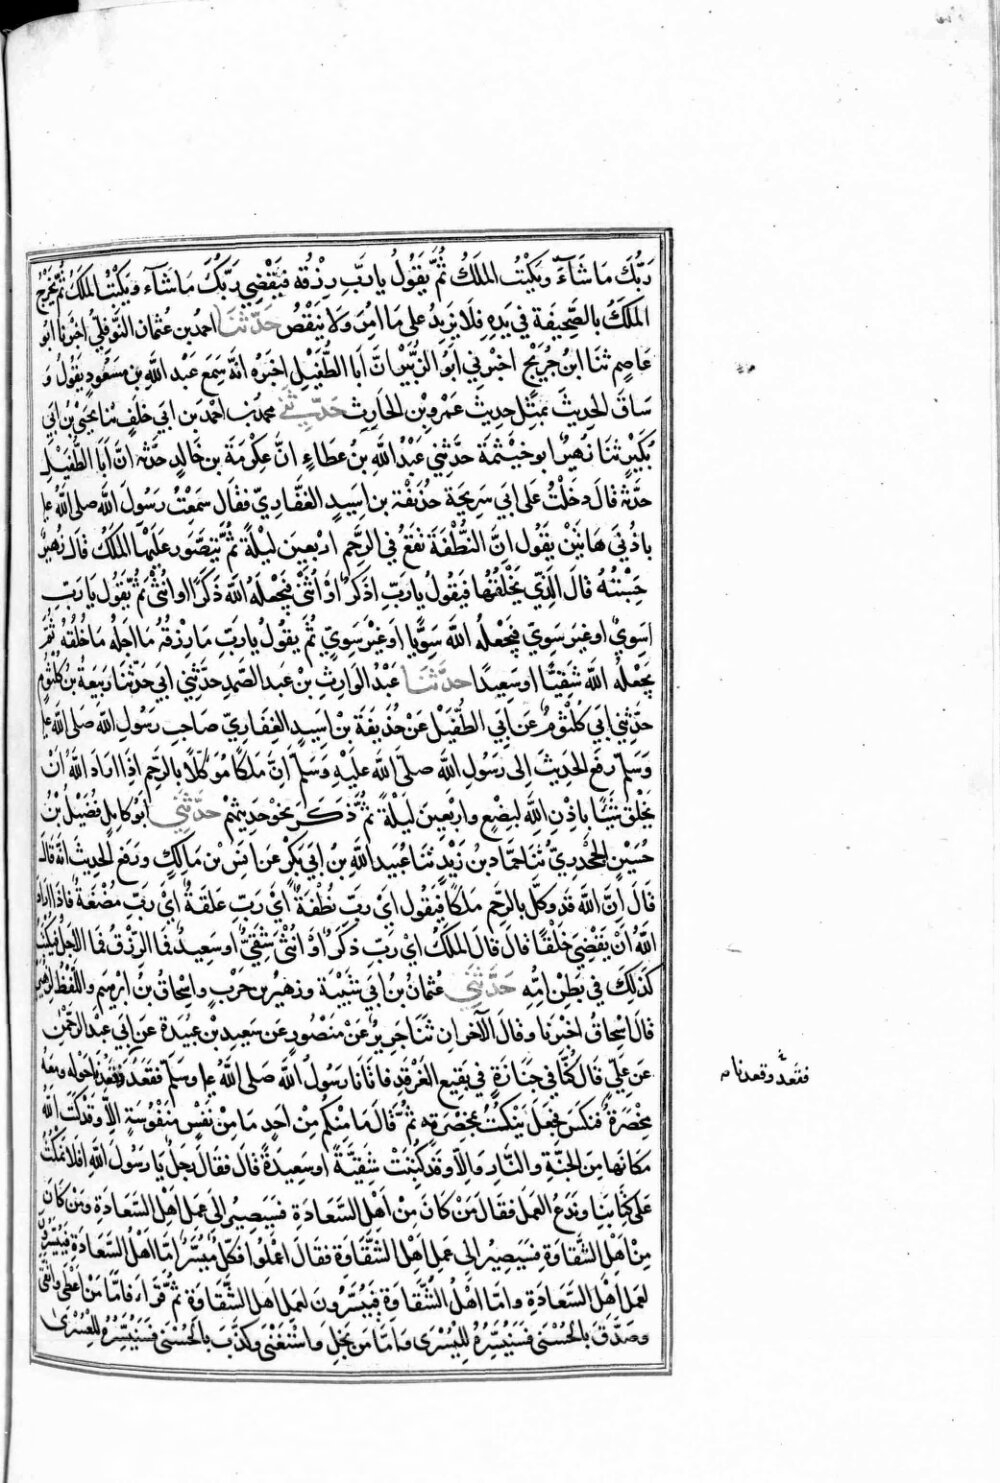 رَبُّكَ مَا شَآءَ وَيَكْتُبُ المَلَكُ ثُمَّ يَقُولُ يا رَبِّ رِزْقُهُ فَيَقْضِي رَبُّكَ مَا شَآء وَيَكْتُبُ المَلَكُ ثُمَّ يَخْرُجُ
المَلَكُ بِالصَّحِيفَةِ في يَدِهِ فِلَا يَزِيدُ عَلى مَا اُمِرَ وَلَا يَنْقُصُ حَدَّثَنَا احمدُ بن عُثمان النَّوفَلِيُّ اخبرنا ابو
عَاصِمٍ ثنا ابنُ جُرَيْجٍ اخبرني ابَوُ الزُّبَيْرِ انَّ أبا الطُّفَيْلِ اخبَرهُ انَّهُ سَمِعَ عَبدَ اللَّهِ بن مسعُودٍ يقُولُ وَ
سَاقَ الحَدِيثَ بمِثْلِ حَدِيث عَمْرِو بْنِ الحَارِثِ حَدَّثَنِي محمدُ بن احْمَدَ بن ابي خَلَفٍ ثنا يحيَى بن ابي
بُكَيْرٍ ثنا زُهَيْرٌ ابو خَيْثَمَةَ حدَّثني عَبْدُ اللَّهِ بنُ عَطاءٍ انَّ عِكْرِمَةَ بن خَالِدٍ حَدَّثهُ انَّ ابَا الطُّفَيْلِ
حَدَّثهُ قالَ دخَلْتُ عَلى ابي سَرِيحَةَ حُذَيْفَةَ بن اَسِيدٍ الغفَّارِيِّ فقَال سَمِعْتُ رَسُولَ اللَّهِ صلى اللَّهُ علـ
باُذُنَيَّ هَاتَيْنِ يقُولُ انَّ النُّطْفَةَ تقَعُ في الرَّحِمِ اربَعِينَ ليْلَةً ثُمَّ يتصَّوَر عَلَيْهَا المَلَكُ قَالَ زُهَيْرٌ
حَسِبْتُهُ قَالَ الَّذِي يَخْلُقُهَا فَيَقُولُ يا رَبِّ اَذَكَرٌ اَوْ اُنْثَى فَيَجْعلُهُ اللَّهُ ذَكَرًا او انُثَى ثُمَّ يَقُولُ يَا رَبِّ
اسَوِيٌّ او غيَر سَوِيٍّ فيَجْعلُهُ اللَّهُ سَوِيًّا اَو غيْرَ سَوِيٍّ ثُمَّ يقُولُ يا رَبِّ مَا رِزْقُهُ مَا اجَلُهُ مَا خُلُقُهُ ثُمَّ
يَجْعلُهُ اللَّهُ شَقِيًّا اَو سَعِيدًا حَدَّثَنَا عَبْدُ الوَارِثِ بن عَبدِ الصَّمدِ حَدَّثَنِي ابي حَدَّثنَا رَبِيعَةُ بنُ كُلْثُومٍ
حَدَّثنِي ابي كلْثُومٌ عَن ابي الطُّفَيْلِ عَنْ حُذَيفَةَ بْنِ اسِيدٍ الغِفَارِيِّ صَاحِبِ رسُولِ اللَّه صَلى اللَّه علـ
وَسَلم رفَعَ الحَدِيثَ اِلى رَسُولِ اللَّه صَلَّى اللَّه عَلَيْهِ وَسَلَم اَنَّ مَلَكًا مُوَكَّلًا بالرَّحِمِ اِذَا ارَادَ اللَّهُ اَنْ
يَخْلُقَ شَيْئًا باِذْنِ اللَّهِ لبِضْعٍ وارْبَعِينَ ليْلَةً ثُمَّ ذَكَرَ نحْوَ حَدِيثِهِمْ حَدَّثَنِي ابُو كَامِلٍ فُضَيْلُ بْنُ
حُسَيْنٍ الجَحْدَرِيُّ ثنَا حَمَّاد بنُ زَيْدٍ ثنا عُبَيد اللَّهِ بن ابي بَكْرٍ عَن انَسِ بْنِ مَالِكٍ وَرَفعَ الحَدِيثَ انهُ قالَ
قَالَ إِنَّ اللَّهَ قد وَكَّلَ بالرَّحِمِ مَلَكًا فيَقُول ايْ رَبِّ نُطْفَةٌ ايْ رَبِّ عَلقَةٌ ايْ رَبِّ مُضْغَةٌ فاذا اراد
اللَّهُ اَنْ يقْضِيَ خَلْقًا قَالَ قالَ المَلَكُ ايْ رَبِّ ذكَرٌ اَوْ اُنْثَى شَقِيٌّ اَو سَعِيدٌ فمَا الرِّزقُ فَمَا الاَجَلُ فيُكْتَبُ
كَذَلِكَ في بَطْنِ امِّهِ حَدَّثَنِي عُثمَانُ بنُ ابي شَيْبَةَ وزهَيْرُ بن حَرْبٍ واِسْحاقُ بنُ اِبْرهِيمَ واللَّفْظُ لِزُهَيْرٍ
قالَ اِسْحاقُ اخْبرَنا وقَالَ الآخرانِ ثنَا جَرِيرٌ عَنْ مَنصُورٍ عَن سَعِيدِ بْنِ عُبَيْدَةَ عَن ابي عبدِ الرَّحْمَنِ
عَن عَلِيٍّ قَالَ كُنَّا في جَنَازَةٍ في بَقِيعِ الغَرْقَدِ فأتانَا رسُولُ اللَّه صَلى اللَّهُ علـ وسَلم فقَعَدَ وَقَعَدْنا حَوْلهُ ومعَهُ
مِخْصَرَةٌ فنكَسَ فجَعلَ يَنكُتُ بمِخْصَرَتِهِ ثمَّ قَالَ مَا مِنكُم مِنْ احَدٍ مَا مِنْ نَفْسٍ مَنْفُوسَةٍ اِلَّا وَقَد كَتبَ اللَّهُ
مَكانَها مِنَ الجَنَّةِ والنَّارِ وَاِلَّا وَقَد كُتِبَتْ شَقِيَّةً اَو سَعِيدَةً قالَ فقَالَ رجُلٌ يا رَسُولَ اللَّهِ افَلا نَمْكُثُ
عَلى كِتَابِنا وندَعُ العَمَلَ فقَالَ مَنْ كَانَ مِنْ اَهْلِ السَّعَادَةِ فَسَيَصِيرُ الَى عَمَلِ اَهْلِ السَّعَادَةِ ومَنْ كَانَ
مِنْ اَهْلِ الشَّقَاوَةِ فسَيَصِيرُ الى عَمَلِ اَهْلِ الشَّقَاوَةِ فقَالَ اعْمَلُوا فكُلٌّ مُيَسَّرٌ امَّا اهْلُ السَّعادَةِ فيُيَسَّرُونَ
لعَمَلِ اَهْلِ السَّعَادَةِ وامَّا اَهْلُ الشَّقَاوَةِ فيُيَسَّرُونَ لعَمَلِ اَهلِ الشَّقَاوَةِ ثمَّ قَرَاَ فَامَّا مَنْ اعْطَى وَاتَّقَى
وصَدَّقَ بالحُسْنَى فسَنُيَسِّرُهُ لِلْيُسْرَى وَامَّا مَن بَخِلَ وَاسْتَغْنَى وَكَذَّبَ بالحُسْنَى فَسَنُيَسِّرُهُ للعُسْرَى
فقعد وقعدنا